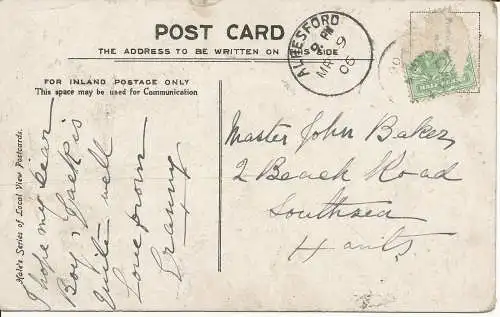 POST CARD
THE ADDRESS TO BE WRITTEN ON THIS SIDE
FOR INLAND POSTAGE ONLY
This space may be used for Communication
ALRESFORD
9 PM
MR 9
06
Hale's Series of Local View Postcards.
I hope my dear
Boy, Jack is
quite well
Love from
Granny
x
Master John Baker,
2 Beach Road
Southsea
Hants.